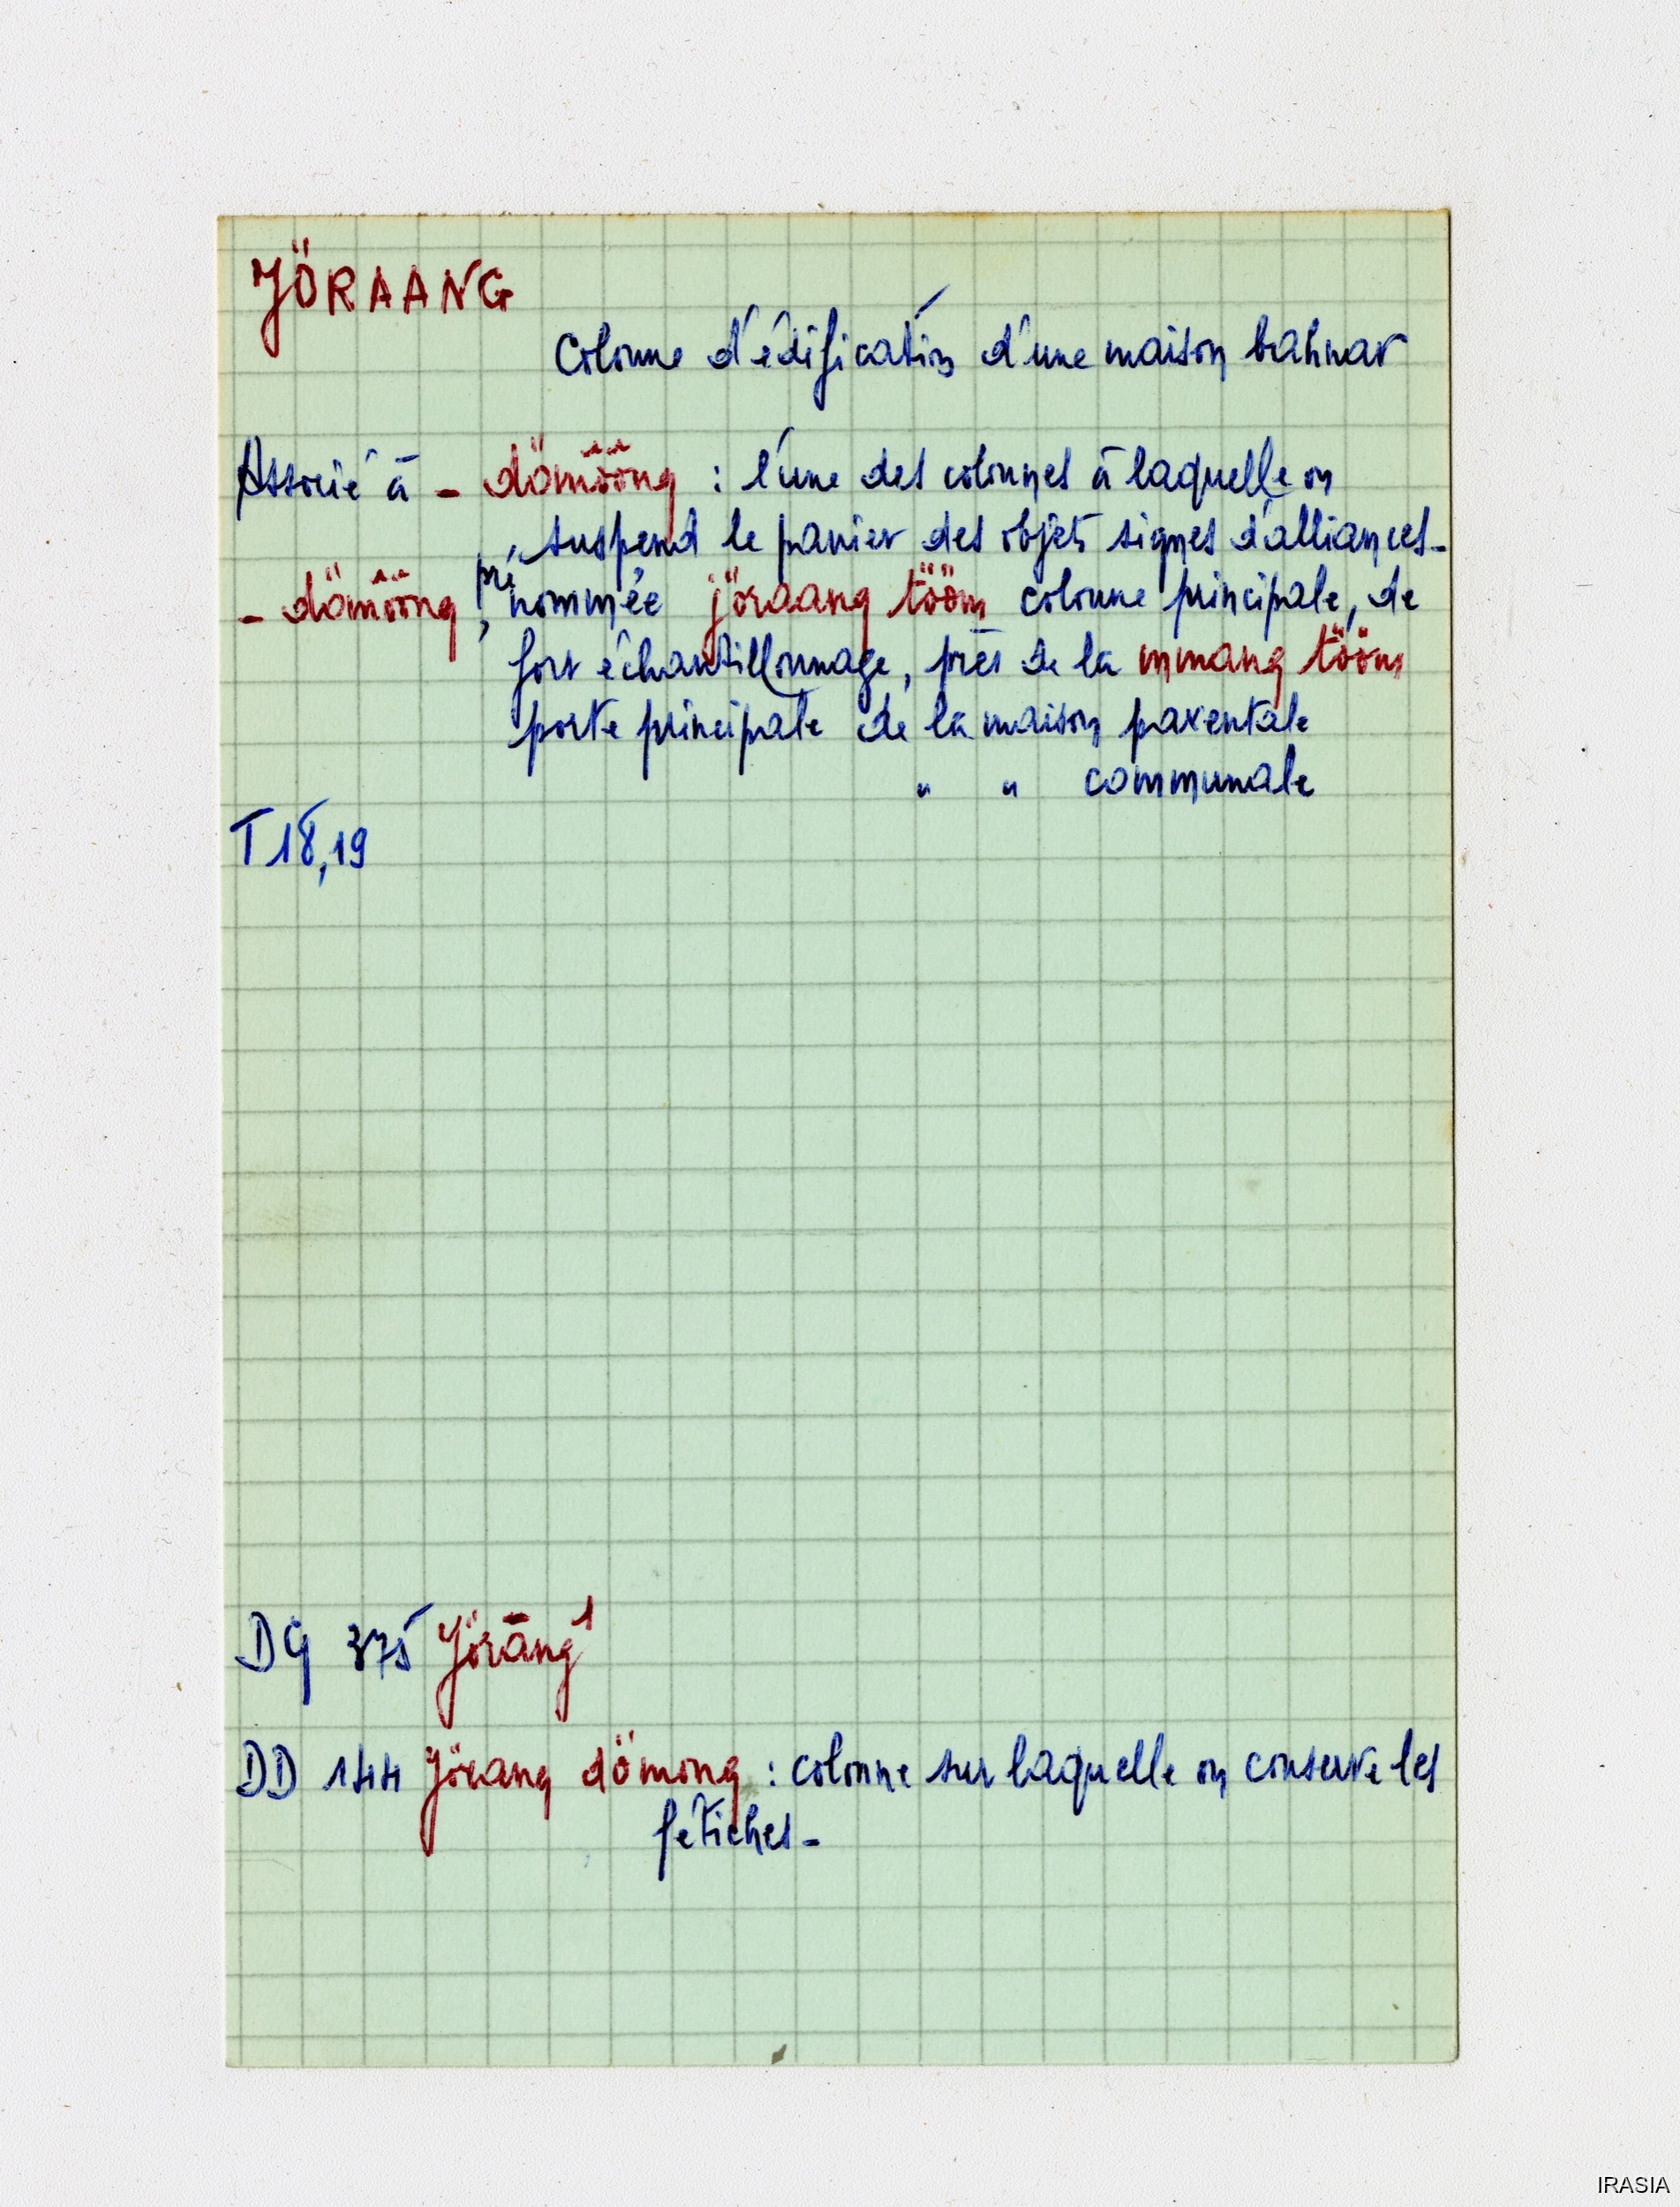 JÖRAANG
Colonne d'édification d'une maison bahnar
Associé à - dömö̂ö̂ng : l'une des colonnes à laquelle on
suspend le panier des objets signes d'alliances-
- dömö̂ö̂ng, prénommée jöraang tööm colonne principale, de
fort échantillonnage, près de la mmang tööm
porte principale de la maison parentale
" " communale
T 18, 19
DG 375 Jörāng¹
DD 144 Jörang dömong : colonne sur laquelle on conserve les
fétiches-
IRASIA